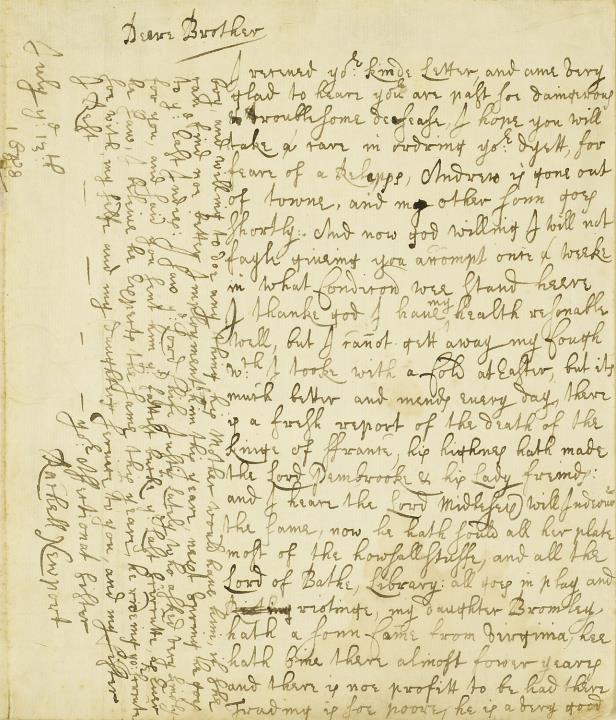 Deere Brother
I receued yor kinde Letter, and ame very
glad to heare you are past soe dangerous
a troublsome decease, I hope you will
take a care in ordring yor dyett, for
feare of a Relapps, Andrew is gone out
of towne, and my other sonn goes
shortly: And now god willing I will not
fayle giueing you accompt once a weeke
in what Condicon wee stand heere
I thanke god I haue my health resonable
well, but I canot gett away my Cough
wth I tooke with a Cold at Easter, but its
much better and mends euery day, there
is a fresh report of the death of the
Kinge of ffrance, his highnes hath made
the Lord Pembrooke & his Lady freinds:
and I heare the Lord will Indeuor
the same, now he hath sould all her plate
most of the howshallstuffe, and all the
Lord of Bathe, Library: all goes in play and
riotinge, my daughter Bromley
hath a sonn Came from Verginia, hee
hath bine there almost fower yeares
and there is noe profitt to be had there
tradinge is soe poore, he is a very good
boy and willing to doe any thing his Mother would haue him, if shee
can find noe better Imployment him this yeare
to ye East Indies,
for you, and said
he saw
with my Wife and my daughters seruice to you, and my Sister
I Rest
yor affectionat Sister
Rachell Newport
July ye 13th
1658